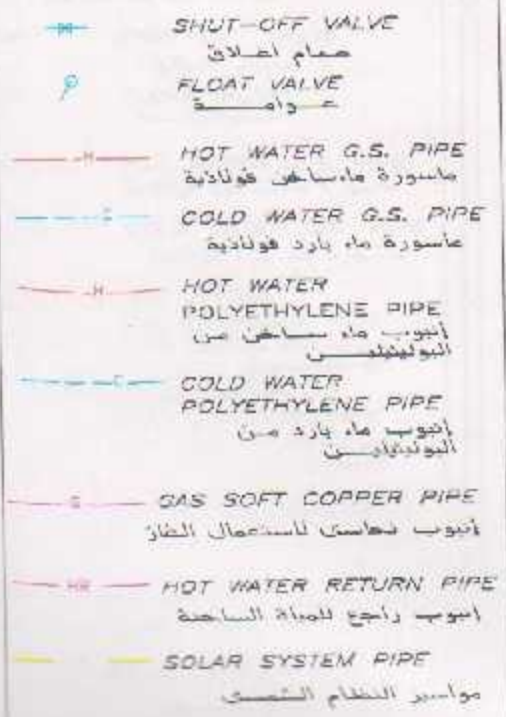 SHUT-OFF VALVE
صمام اغلاق
FLOAT VALVE
عوامة
H HOT WATER G.S. PIPE
ماسورة ماء ساخن فولاذية
C COLD WATER G.S. PIPE
ماسورة ماء بارد فولاذية
H HOT WATER
POLYETHYLENE PIPE
أنبوب ماء ساخن من
البوليثيلين
C COLD WATER
POLYETHYLENE PIPE
أنبوب ماء بارد من
البوليثيلين
G GAS SOFT COPPER PIPE
أنبوب نحاسي لاستعمال الغاز
HR HOT WATER RETURN PIPE
أنبوب راجع للمياة الساخنة
SOLAR SYSTEM PIPE
مواسير النظام الشمسي